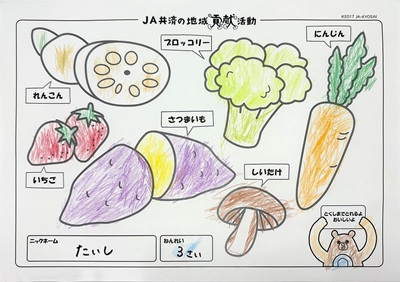 JA共済の地域貢献活動
©2017 JA-KYOSAI
ブロッコリー
にんじん
れんこん
さつまいも
いちご
しいたけ
とくしまでとれるよ
おいしいよ
ニックネーム
たいし
ねんれい
3さい